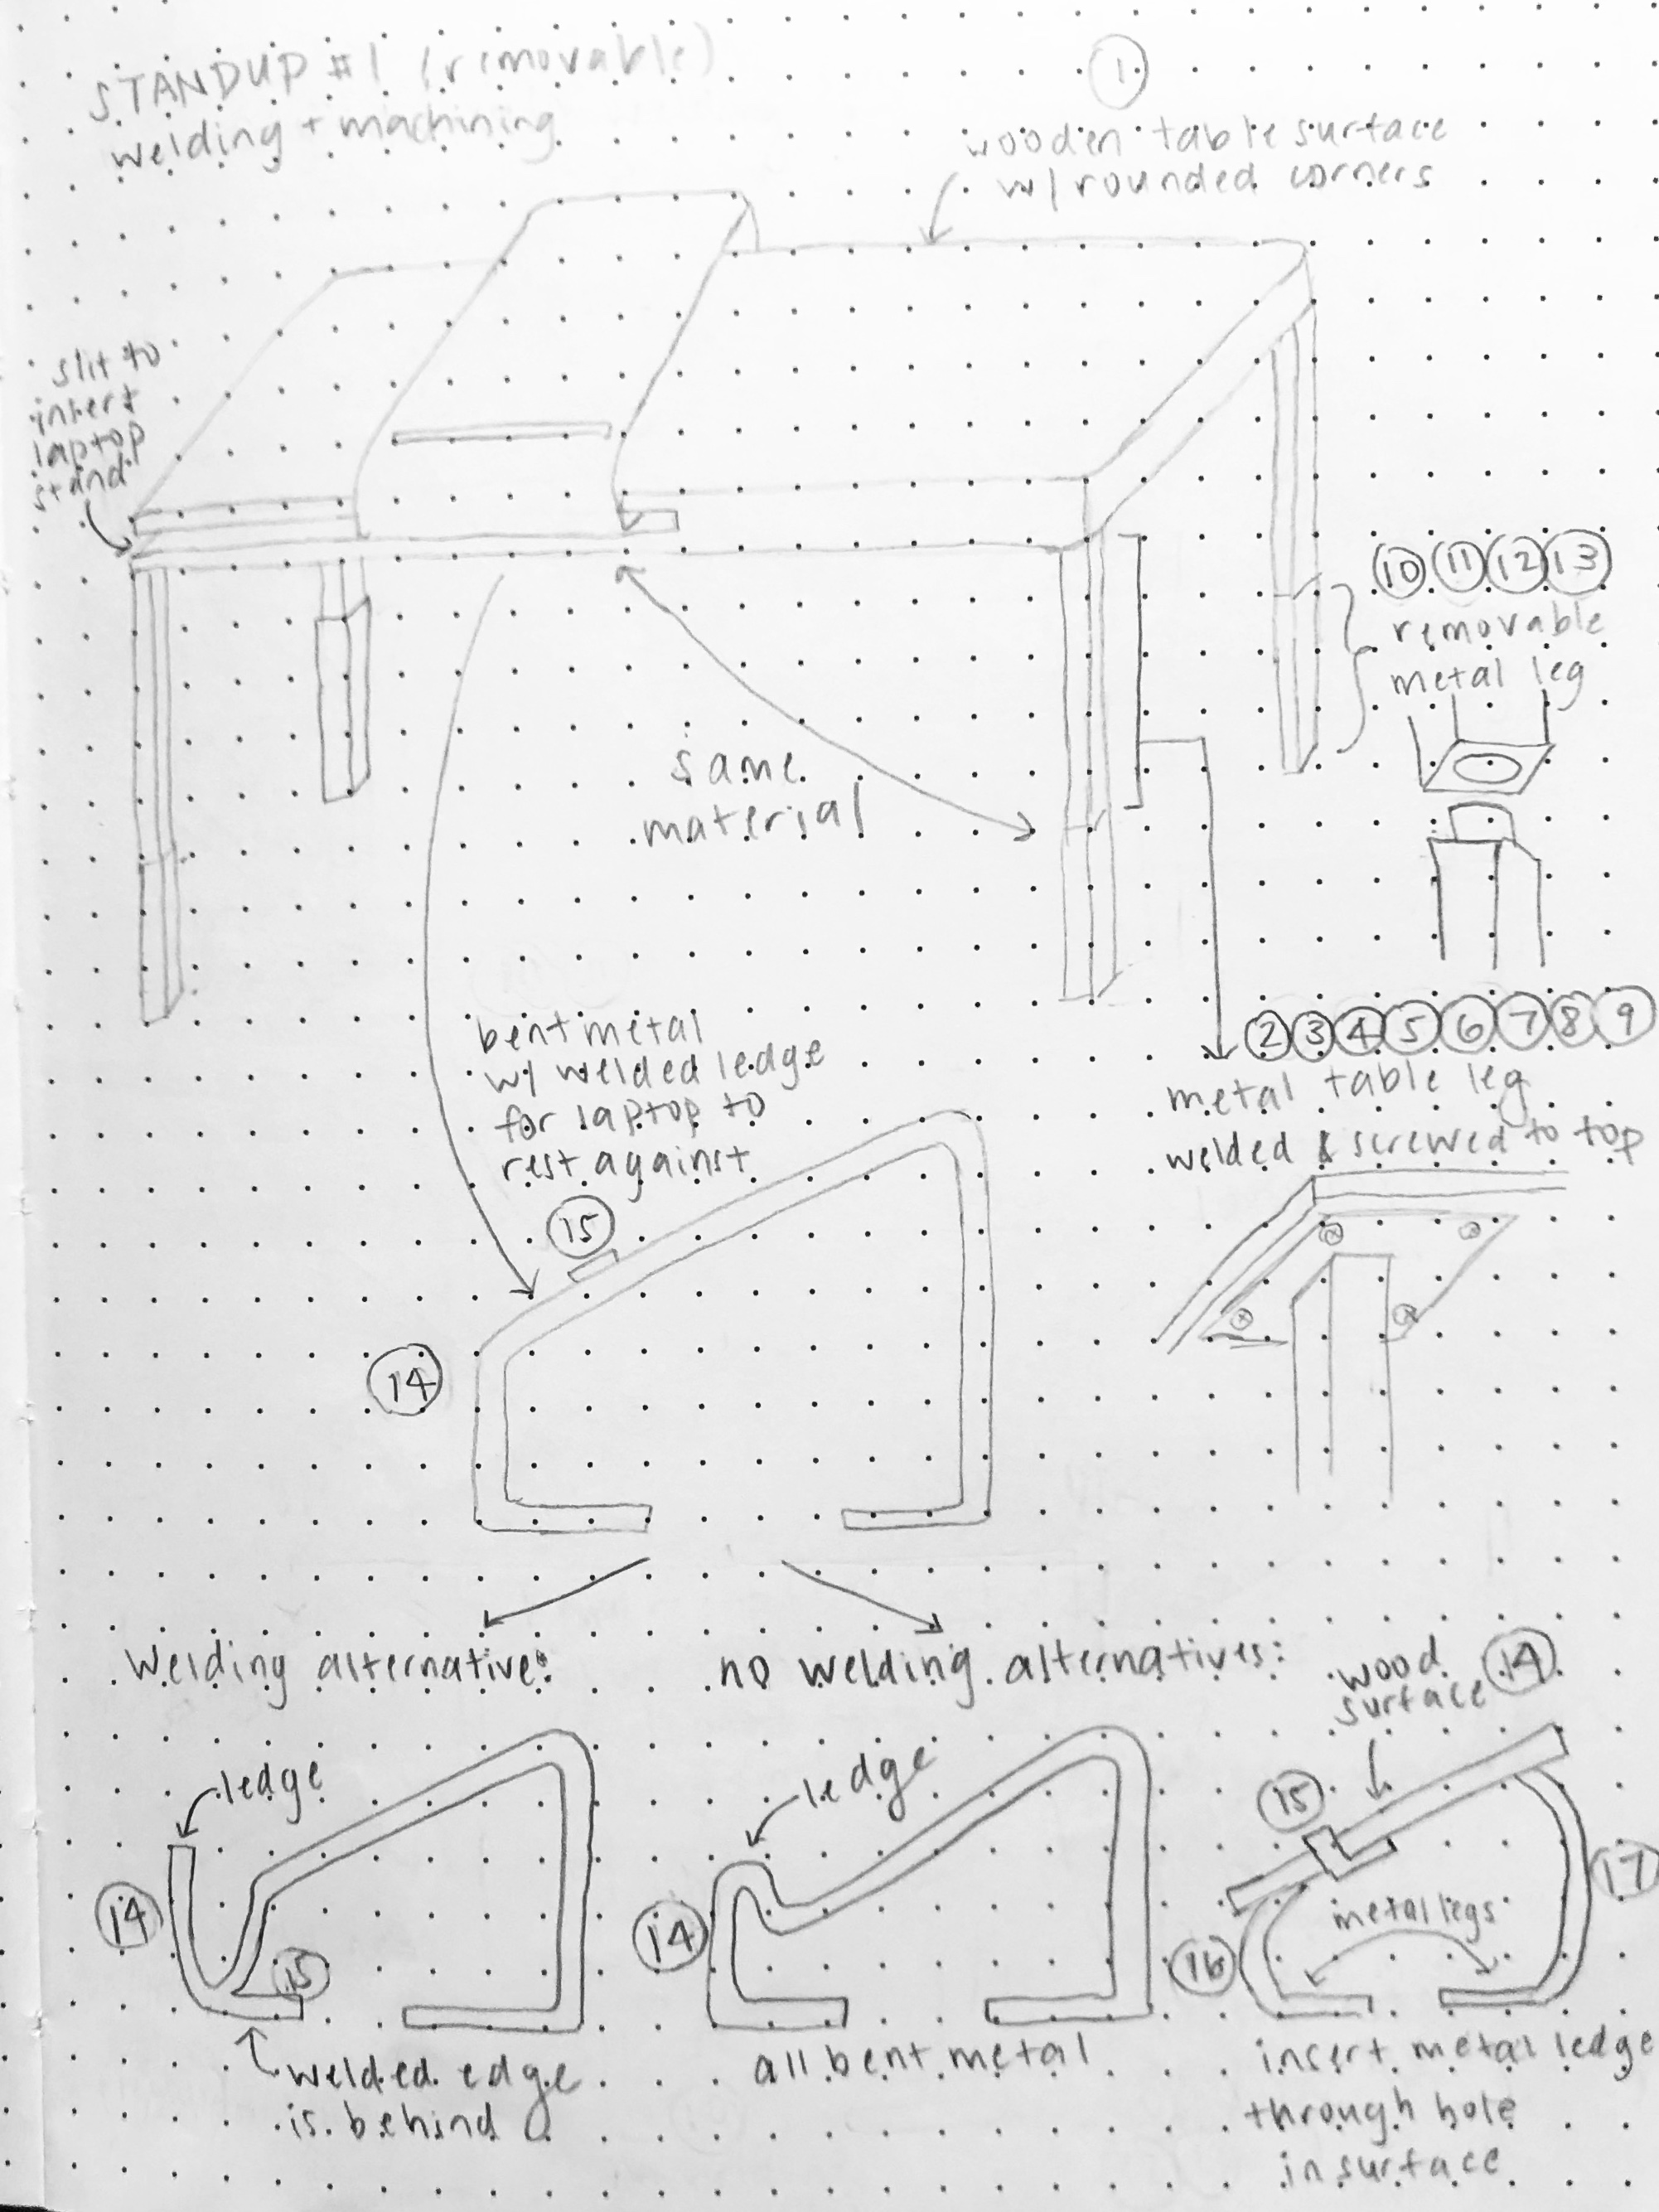 STANDUP #1 (removable)
welding + machining
1
wooden table surface
w/ rounded corners
slit to
insert
laptop
stand
10 11 12 13
removable
metal leg
same
material
2 3 4 5 6 7 8 9
metal table leg
welded & screwed to top
bent metal
w/ welded ledge
for laptop to
rest against
15
14
Welding alternative:
ledge
14
15
welded edge
is behind
no welding alternatives:
ledge
14
all bent metal
wood
surface
14
15
17
metal legs
16
insert metal ledge
through hole
in surface